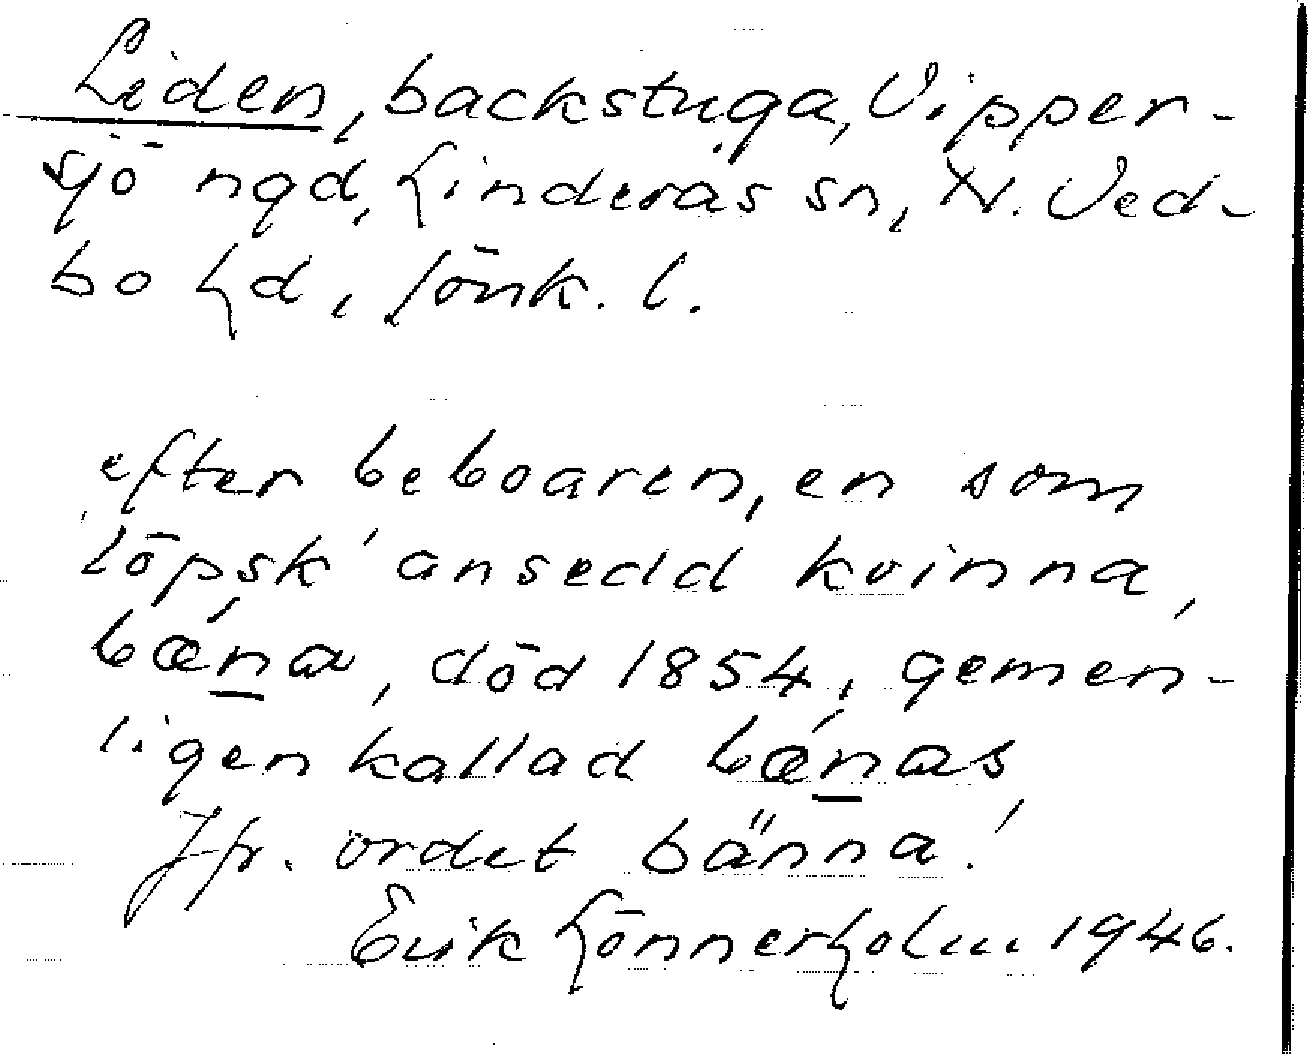 Liden, backstuga, Vipper-
sjö ngd, Linderås sn, N. Ved-
bo hd, Jönk. l.
efter beboaren, en som
'löpsk' ansedd kvinna,
bǽna, död 1854, gemen-
ligen kallad bǽnas
Jfr. ordet bänna!
Erik Lönnerholm 1946.